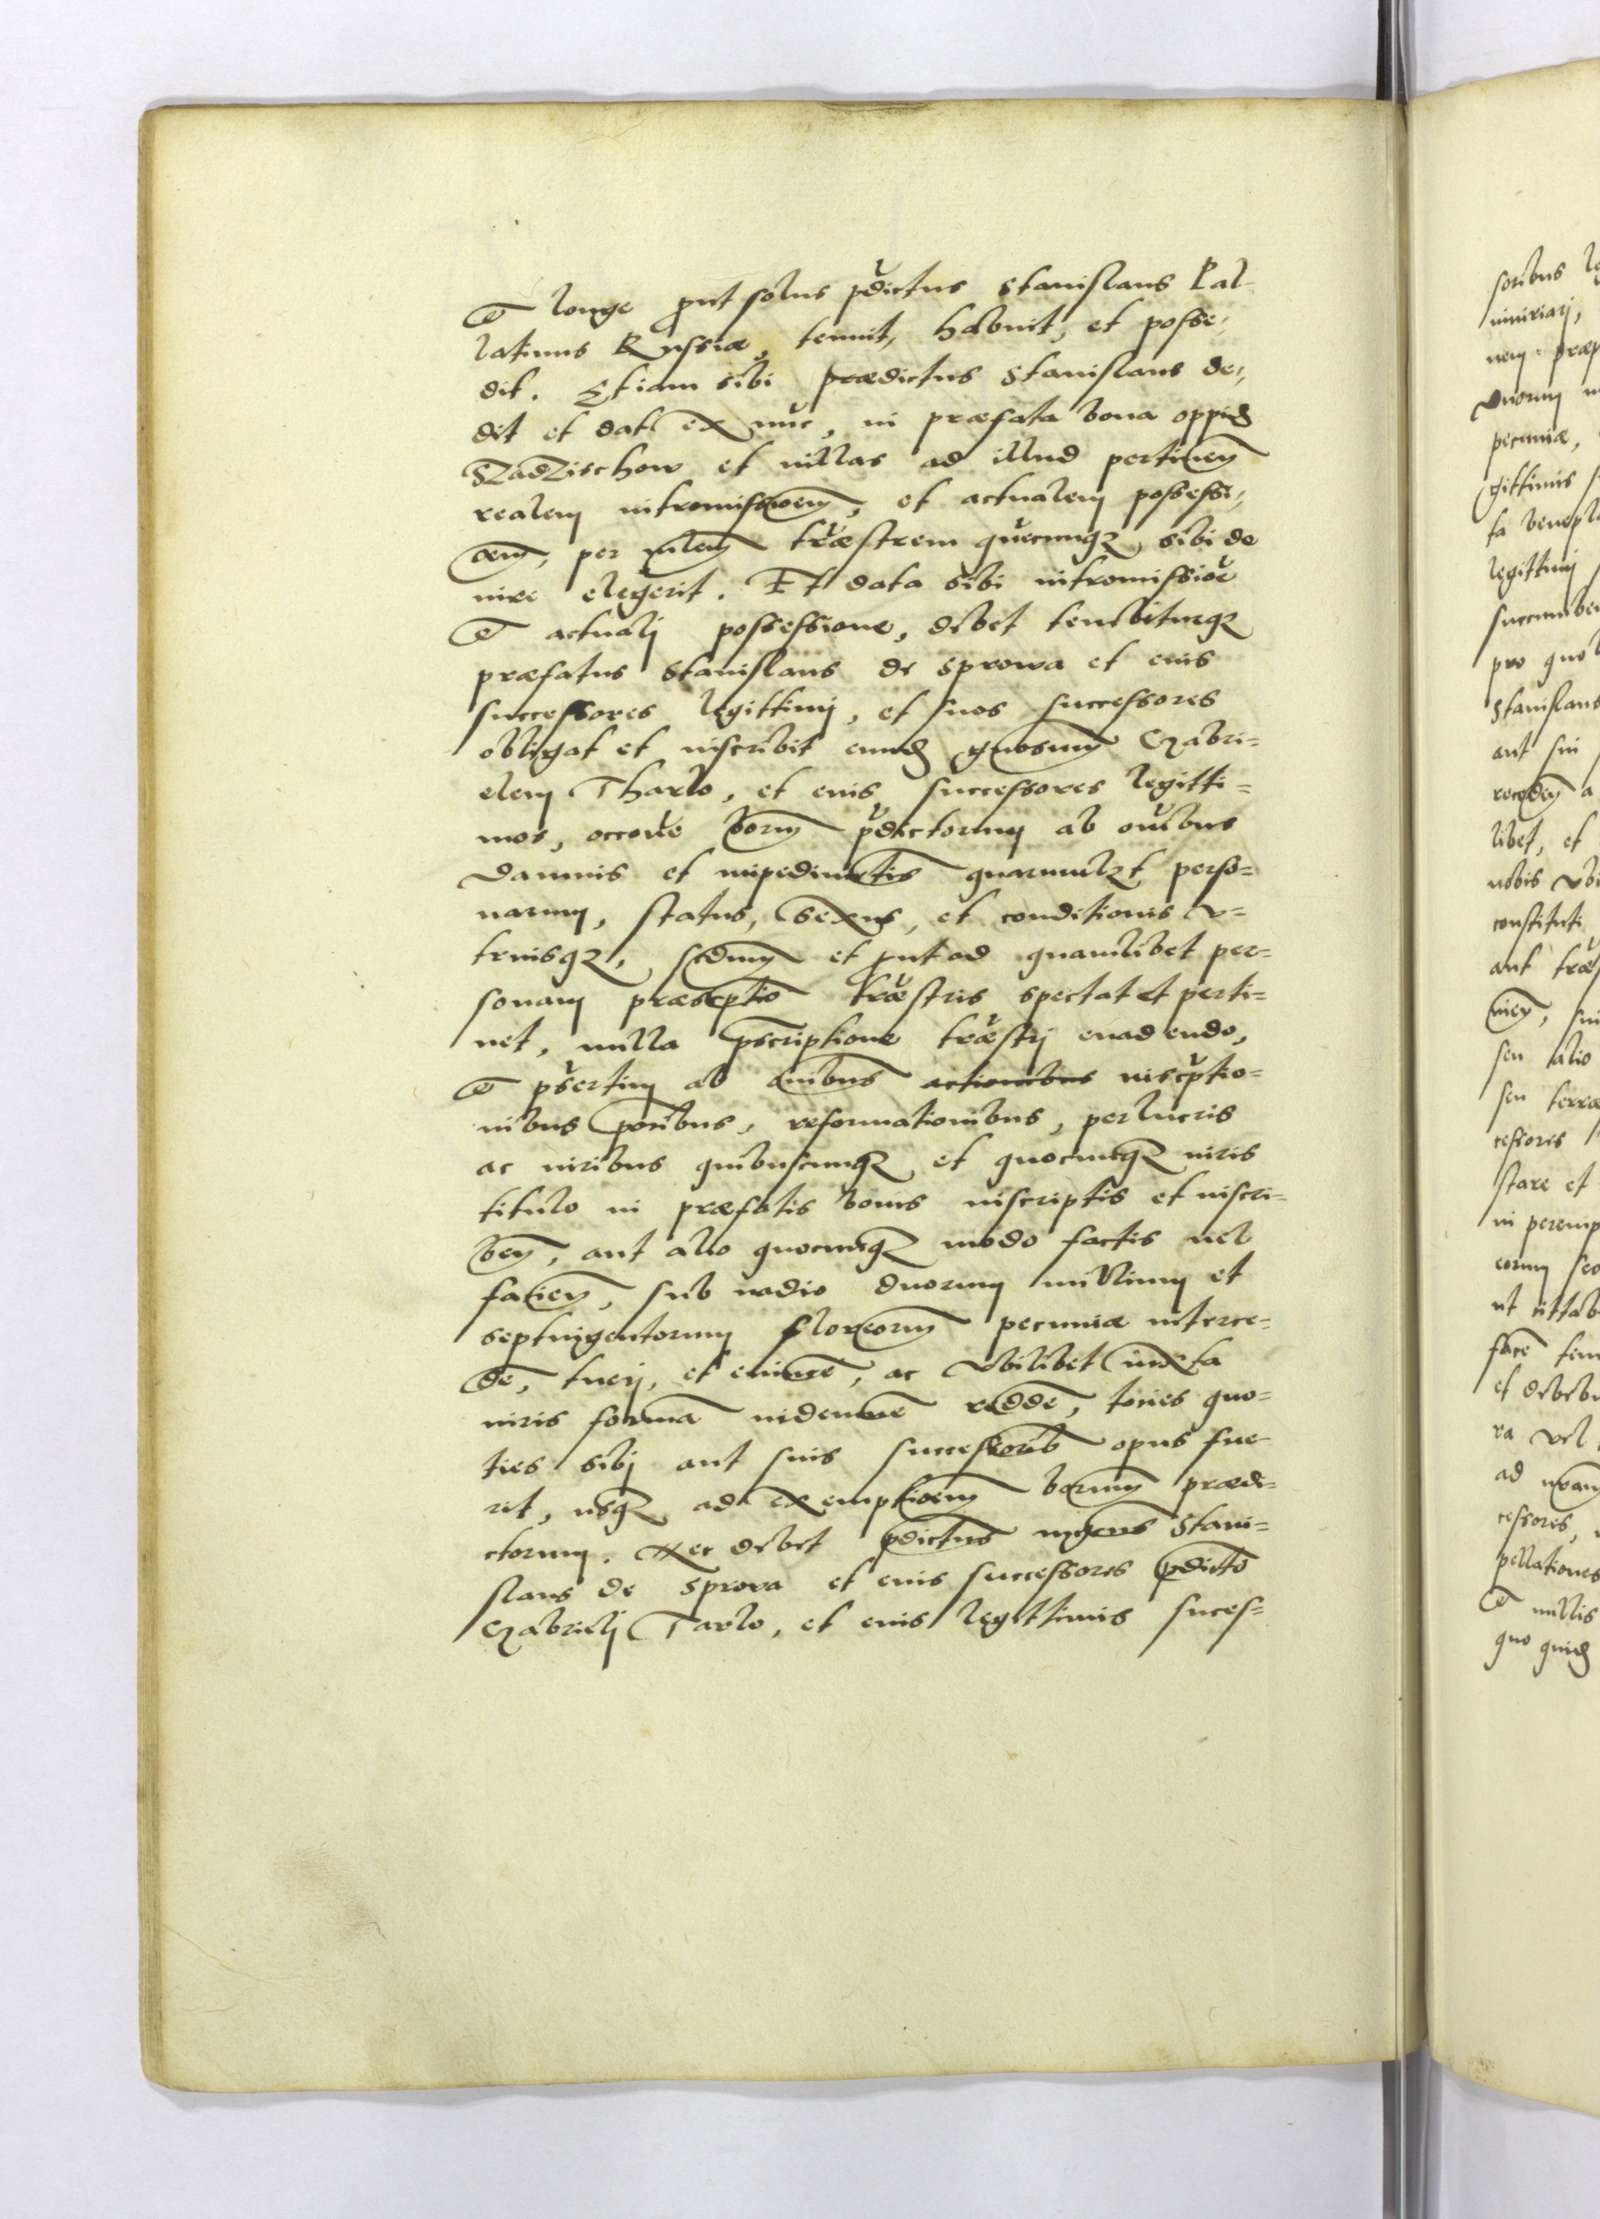 et longe put solus pdictus Stanislaus Pal-
latinus Russiæ, tenuit, habuit, et posse-
dit. Etiam sibi prædictus Stanislaus de-
dit et dat ex nuc, in præfata bona oppid
Szadzischow et villas ad illud pertineñ
realem intromissioem, et actualem possessi-
oem, per træstrem quecunqz sibi de
iure elegerit. Et data sibi intromissioe
et actualj possessione, debet tenebiturqz
præfatus Stanislaus de Sprowa et eius
successores legittimj, et suos successores
obligat et inscribit eund gnosum Gabri-
elem Tharlo, et eius successores legitti-
mos, occoe borum pdictorum ab oibus
damnis et impedimetis quarumlzt perso-
narum, status, sexus, et conditionis v-
triusqz, scdum et put ad quamlibet per-
sonam præscptio træstris spectat et perti-
net, nulla pscriptione træstrj euadendo,
et psertim ab oibus actionibus inscptio-
nibus poribus, reformationibus, perlucris
ac iuribus quibuscunqz et quocunqz iuris
titulo in præfatis bonis inscriptis et inscri-
beñ, aut alio quocunqz modo factis uel
facieñ, sub uadio duorum millium et
septuigentorum floreorum pecuniæ interce-
de, tuerj, et euince, ac vbilibet iuxta
iuris forma euidenter redde, toties quo-
ties sibj aut suis successorib opus fue-
rit, usqz ad exemptioem borum prædi-
ctorum. Nec debet pdictus mgcus Stani-
slaus de Sprova et eius successores pdicto
Gabrielj Tarlo, et eius legittimis suces-